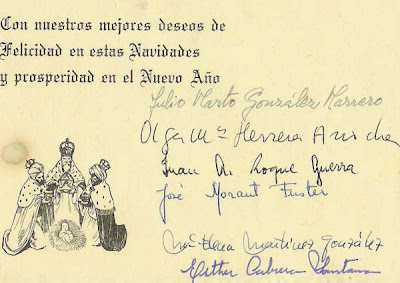 Con nuestros mejores deseos de
Felicidad en estas Navidades
y prosperidad en el Nuevo Año
Julio Marto González Marrero
Olga Mª Herrera
Juan A. Roque Guerra
José Morant Fuster
Mª Elena Martínez González
Esther Cabrera Santana